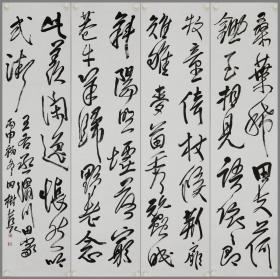 桑葉稀田夫荷
鋤至相見語依依即
牧童倚杖候荊扉
雉雊麥苗秀蠶眠
斜陽照墟落窮
巷牛羊歸野老念
此羨閒逸悵然吟
式微
王右丞渭川田家
丙申初冬田樹萇